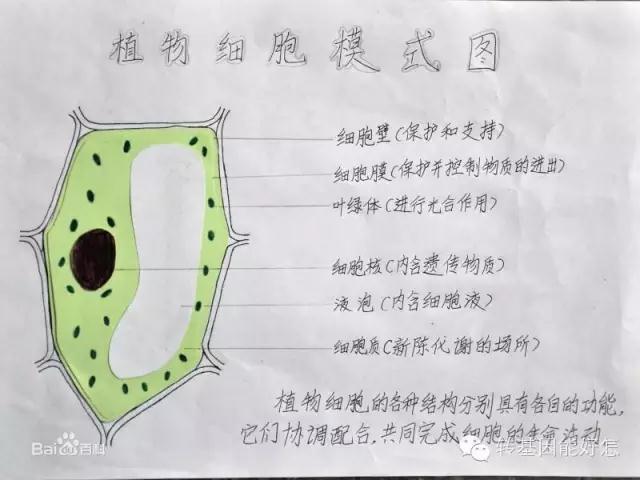 植物细胞模式图
细胞壁(保护和支持)
细胞膜(保护并控制物质的进出)
叶绿体(进行光合作用)
细胞核(内含遗传物质)
液泡(内含细胞液)
细胞质(新陈代谢的场所)
植物细胞的各种结构分别具有各自的功能,
它们协调配合,共同完成细胞的生命活动
Bai百科
转基因能好怎